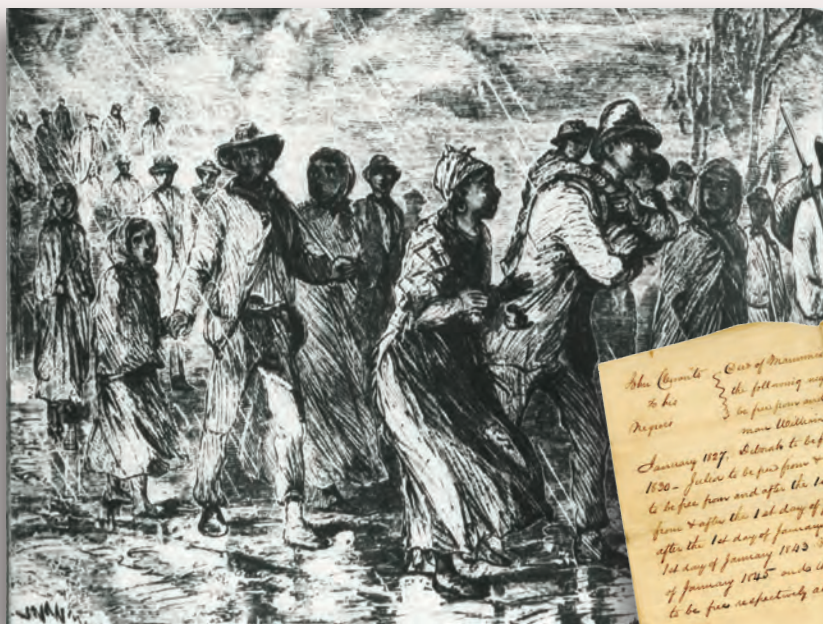 to his
Negroes
Deed of Manumission
the following neg
be free from and
man William
January 1827. Deborah to be f
1830 - to be free from &
to be free from and after the 1s
from & after the 1st day of
after the 1st day of January
1st day of January 1843
of January 1845 and
to be free respectively a